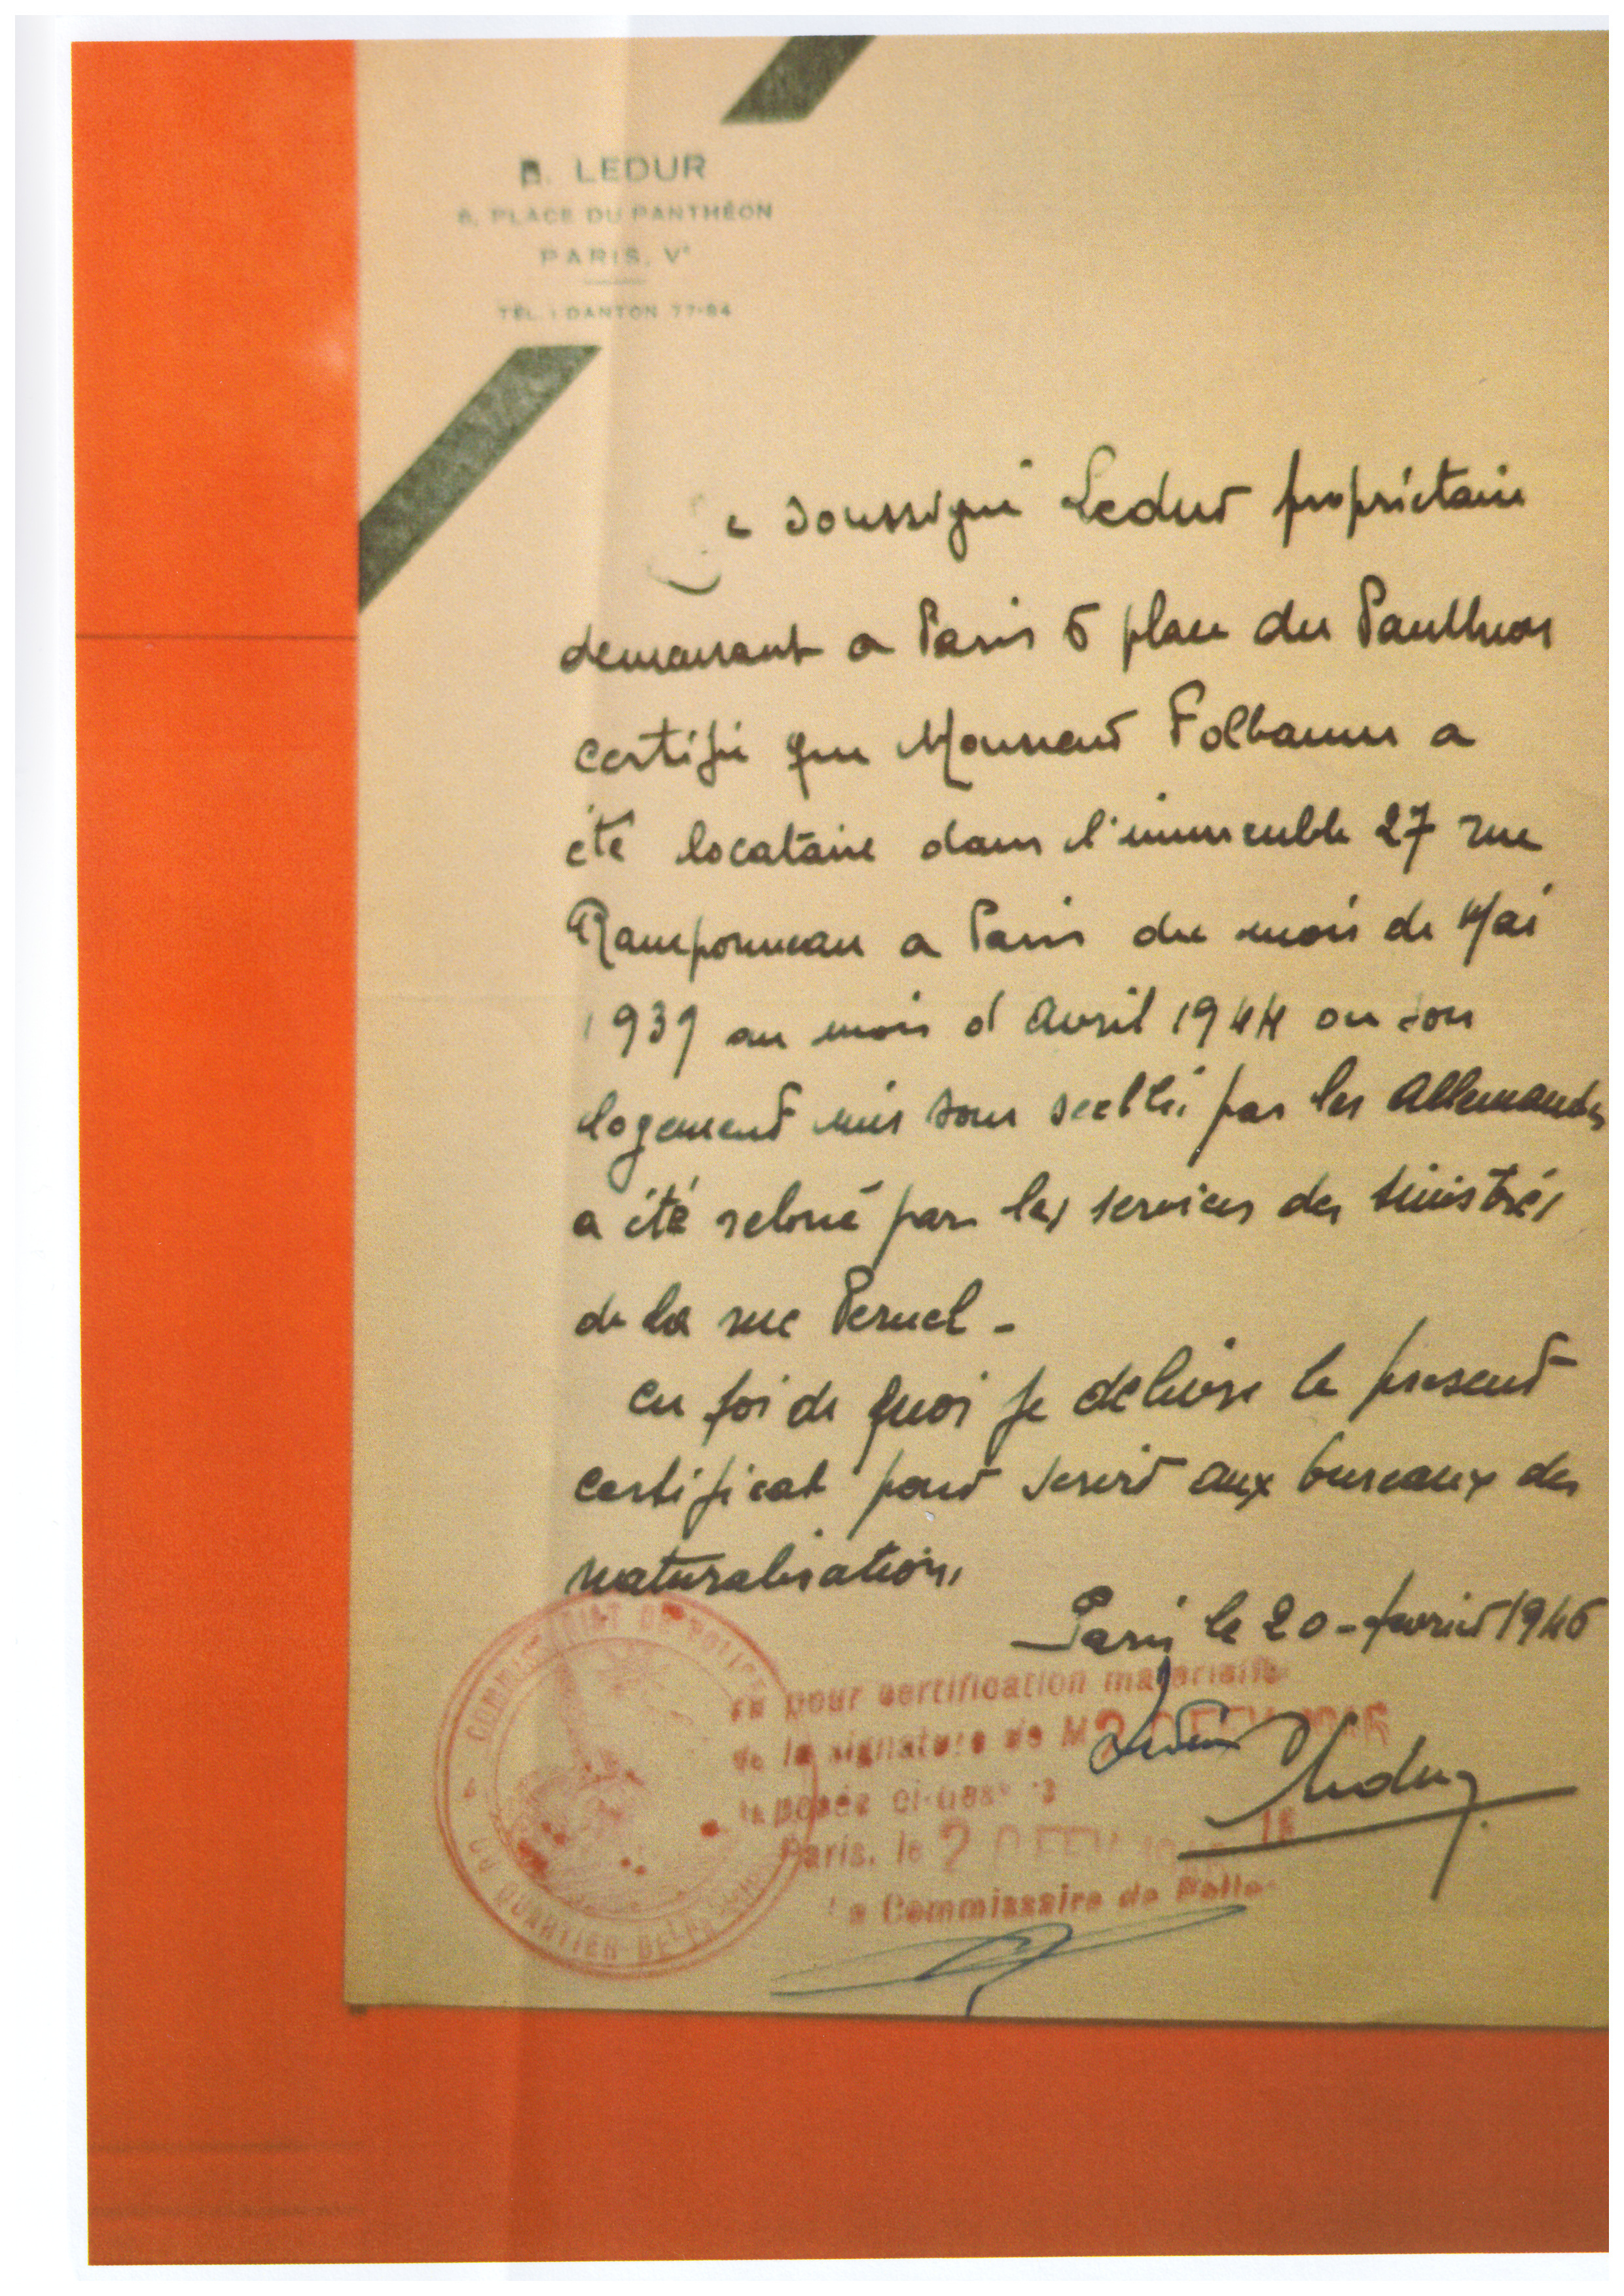 B. LEDUR
6, PLACE DU PANTHÉON
PARIS, Vᵉ
TÉL. : DANTON 77-84
Je soussigné Ledur propriétaire
demeurant a Paris 6 place du Panthéon
certifie que Monsieur Folbaum a
été locataire dans l'immeuble 27 rue
Ramponneau a Paris du mois de Mai
1939 au mois d Avril 1944 ou son
logement mis sous scellé par les Allemands
a été reloué par les services des sinistrés
de la rue Pernel -
en foi de quoi je delivre le present
certificat pour servir aux bureaux des
naturalisations
Paris le 20 - fevrier 1946
COMMISSARIAT DE POLICE
DU QUARTIER BELLEVILLE
Vu pour certification matérielle
de la signature de M Ledur
apposée ci-dessus
20 FEV 1946
Ledur
Paris, le 20 FEV 1946 19
Le Commissaire de Police